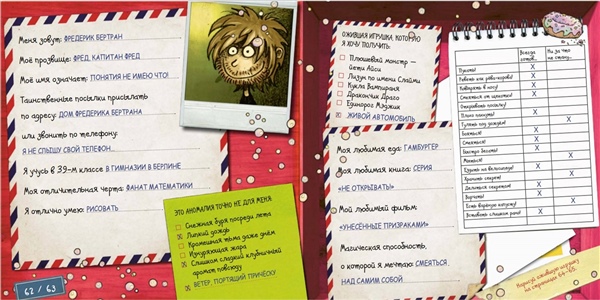 Меня зовут: ФРЕДЕРИК БЕРТРАН
Моё прозвище: ФРЕД, КАПИТАН ФРЕД
Моё имя означает: ПОНЯТИЯ НЕ ИМЕЮ ЧТО!
Таинственные посылки присылать
по адресу: ДОМ ФРЕДЕРИКА БЕРТРАНА
или звонить по телефону:
Я НЕ СЛЫШУ СВОЙ ТЕЛЕФОН...
Я учусь в 39-м классе В ГИМНАЗИИ В БЕРЛИНЕ
Моя отличительная черта: ФАНАТ МАТЕМАТИКИ
Я отлично умею: РИСОВАТЬ
ЭТА АНОМАЛИЯ ТОЧНО НЕ ДЛЯ МЕНЯ
Снежная буря посреди лета
Липкий дождь
Кромешная тьма даже днём
Изнуряющая жара
Слишком сладкий клубничный
аромат повсюду
ВЕТЕР, ПОРТЯЩИЙ ПРИЧЁСКУ
62 / 63
ОЖИВШАЯ ИГРУШКА, КОТОРУЮ
Я ХОЧУ ПОЛУЧИТЬ:
Плюшевый монстр –
йети Айси
Лизун по имени Слайми
Кукла Вампирана
Дракончик Драго
Единорог Мэджик
ЖИВОЙ АВТОМОБИЛЬ
Моя любимая еда: ГАМБУРГЕР
Моя любимая книга: СЕРИЯ
«НЕ ОТКРЫВАТЬ!»
Мой любимый фильм:
«УНЕСЁННЫЕ ПРИЗРАКАМИ»
Магическая способность,
о которой я мечтаю: СМЕЯТЬСЯ
НАД САМИМ СОБОЙ
Всегда
готов...
Ни за что
не стану...
Пукать! X
Ковырять в носу! X
Смеяться от щекотки! X
Открывать посылку! X
Плохо пахнуть! X
Гулять под дождём! X
Бояться! X
Смеяться! X
Быстро бегать! X
Мыться! X
Ездить на велосипеде! X
Хранить секрет! X
Делиться секретом! X
Ворчать! X
Есть варёную капусту! X
Вставать слишком рано! X
Нарисуй ожившую игрушку
на страницах 64-65.